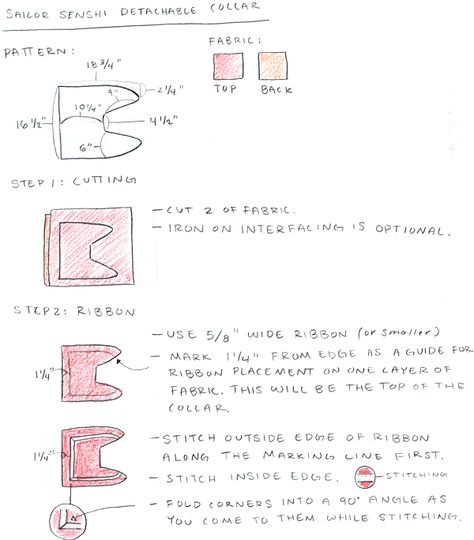 SAILOR SENSHI DETACHABLE COLLAR
PATTERN:
FABRIC:
TOP BACK
18 3/4"
9"
2 1/4"
10 1/4"
16 1/2"
4 1/2"
6"
STEP 1: CUTTING
- CUT 2 OF FABRIC.
- IRON ON INTERFACING IS OPTIONAL.
STEP 2: RIBBON
- USE 5/8" WIDE RIBBON (or smaller)
- MARK 1 1/4" FROM EDGE AS A GUIDE FOR
RIBBON PLACEMENT ON ONE LAYER OF
FABRIC. THIS WILL BE THE TOP OF THE
COLLAR.
1 1/4"
- STITCH OUTSIDE EDGE OF RIBBON
ALONG THE MARKING LINE FIRST.
1 1/4"
- STITCH INSIDE EDGE. - STITCHING
- FOLD CORNERS INTO A 90° ANGLE AS
YOU COME TO THEM WHILE STITCHING.